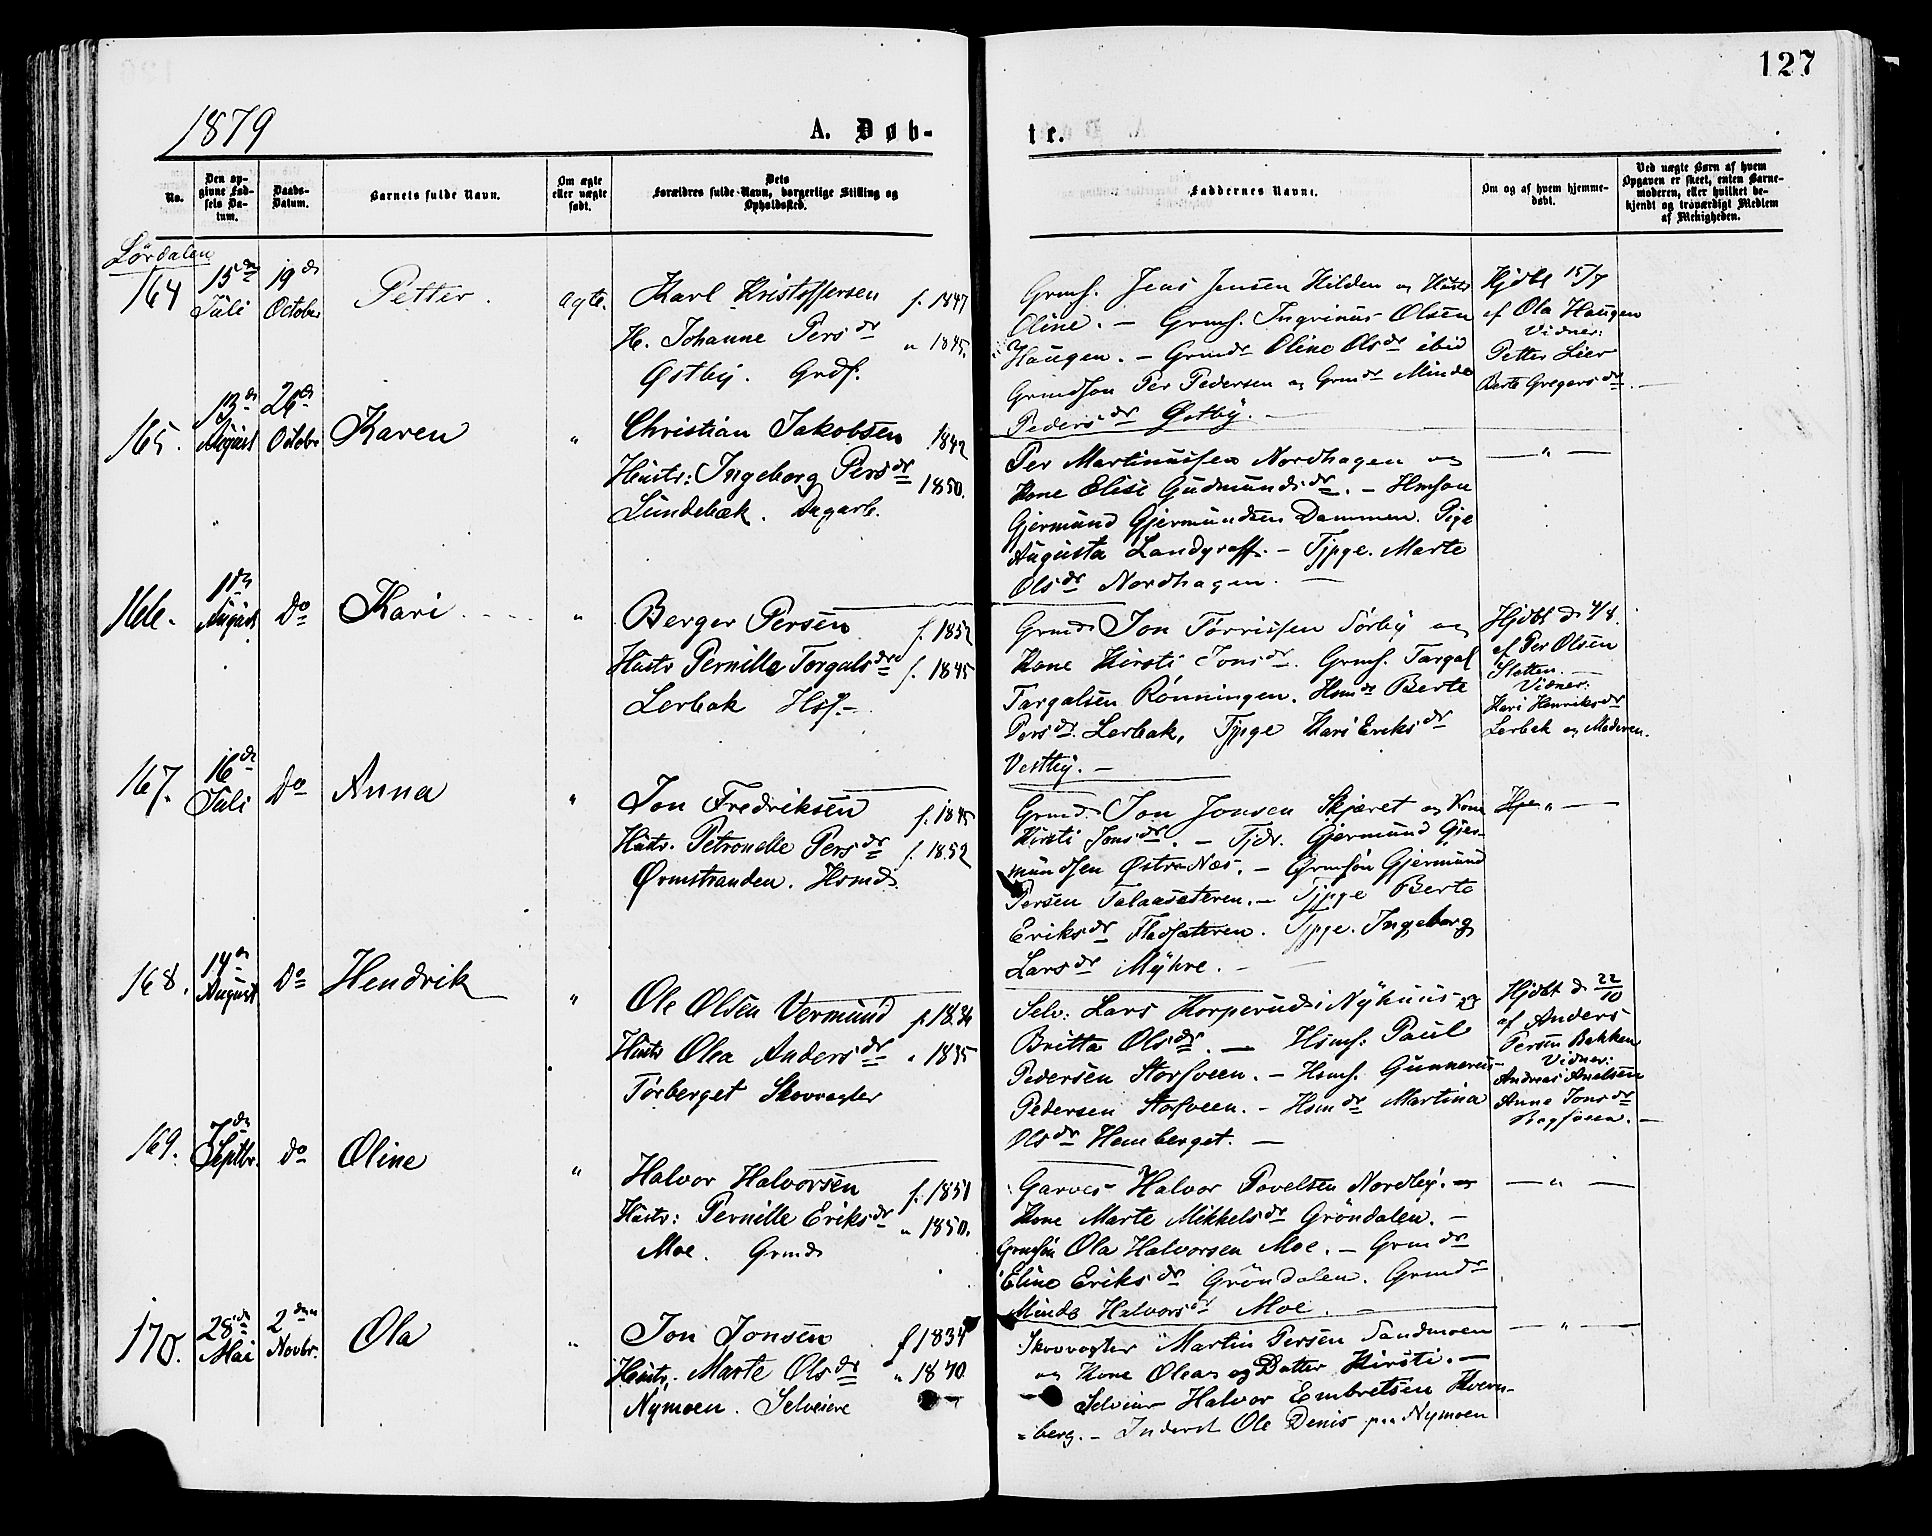 127
1879
A. Døb-
te.
No.
Den op-
givne Fød-
sels Da-
tum.
Daabs-
Datum.
Barnets fulde Navn.
Om ægte
eller uægte
født.
Dets
Forældres fulde Navn, borgerlige Stilling og
Opholdssted.
Faddernes Navne.
Om og af hvem hjemme-
døbt.
Ved uægte Børn af hvem
Opgaven er skeet, enten Barne-
moderen, eller hvilket be-
kjendt og troværdigt Medlem
af Menigheden.
Lørdalen
164
15de
Juli
19de
October
Petter.
ægte.
Karl Kristoffersen f. 1847
H. Johanne Persdr " 1845.
Østby. Grdf.
Grmf. Jens Jensen Hilden og Hustr
Oline. — Grmf. Ingrinus Olsen
Haugen. — Grmdr Oline Olsdr ibid
Grmdsøn Per Pedersen og Grmdr Minda
Pedersdr Østby. —
Hjdbt 15/7
af Ola Haugen
Vidner:
Petter Lier
Berte Gregersdr. —
165.
13de
August
26de
Octobr
Karen
"
Christian Jakobsen 1842
Hustr: Ingeborg Persdr 1850.
Lundebæk. Dagarb.
Per Martinussen Nordhagen og
Kone Elise Gudmundsdr. — Hmsøn
Gjermund Gjermundsen Dammen. Pige
Augusta Landgraff. — Tjpge. Marte
Olsdr Nordhagen. —
— " —
166.
1de
August
Do
Kari
"
Berger Persen f. 1852
Hustr Pernille Torgalsdr f. 1845
Lerbak Hsf. —
Grmd Jon Tørrissen Sørby og
Kone Kirsti Jonsdr. Grmf. Targal
Targalsen Rønningen. Hsmdr Berte
Persdr. Lerbak, Tjpge Kari Eriksdr
Vestby. —
Hjdbt d 4/8.
af Per Olsen
Slotten. —
Vidner:
Kari Henriksdr
Lerbek og Moderen.
167.
16de
Juli
Do
Anna
"
Jon Fredriksen f. 1845
Hustr. Petronelle Persdr f. 1852
Ørmstranden. Hsmd.
Grmd. Jon Jonsen Skjæret og Kone
Kirsti Jonsdr. — Tjdr. Gjermund Gjer-
mundsen Østre Næs. — Grmsøn Gjermund
Persen Talaasæteren. — Tjpge Berte
Eriksdr Fladsæteren. Tjpge. Ingeborg
Larsdr Myhre. —
" —
168.
14de
August
Do
Hendrik
"
Ole Olsen Vermund f. 1834
Hustr Olea Andersdr " 1835
Tørberget Skovvogter
Selv: Lars Korperud i Nyhuus og
Britta Olsdr. — Hsmf: Paul
Pedersen Storsveen. — Hsmf. Gunnerius
Pedersen Storsveen. — Hsmdr Martina
Olsdr Hemberget. —
Hjdbt d 22/10
af Anders
Persen Bakken
Vidner:
Andreas Axelsen
Anna Jonsdr
169.
7de
Septbr.
do
Oline
"
Halvor Halvorsen f. 1851
Hustr: Pernille Eriksdr " 1850.
Moe. Grmd
Garver Halvor Povelsen Nordby. og
Kone Marte Mikkelsdr Grøndalen. —
Grmsøn Ola Halvorsen Moe. — Grmdr
Eline Eriksdr Grøndalen. Grmdr
Minda Halvorsdr Moe. —
— " —
170.
28de
Mai
2den
Novbr.
Ola
"
Jon Jonsen f 1834
Hustr. Marte Olsdr " 1840
Nymoen. Selveiere
Skovvogter Martin Persen Sandmoen
og Kone Olea og Datter Kirsti. —
Selveier Halvor Embretsen Kvern-
berg. — Inderst Ole Denis paa Nymoen
— " —